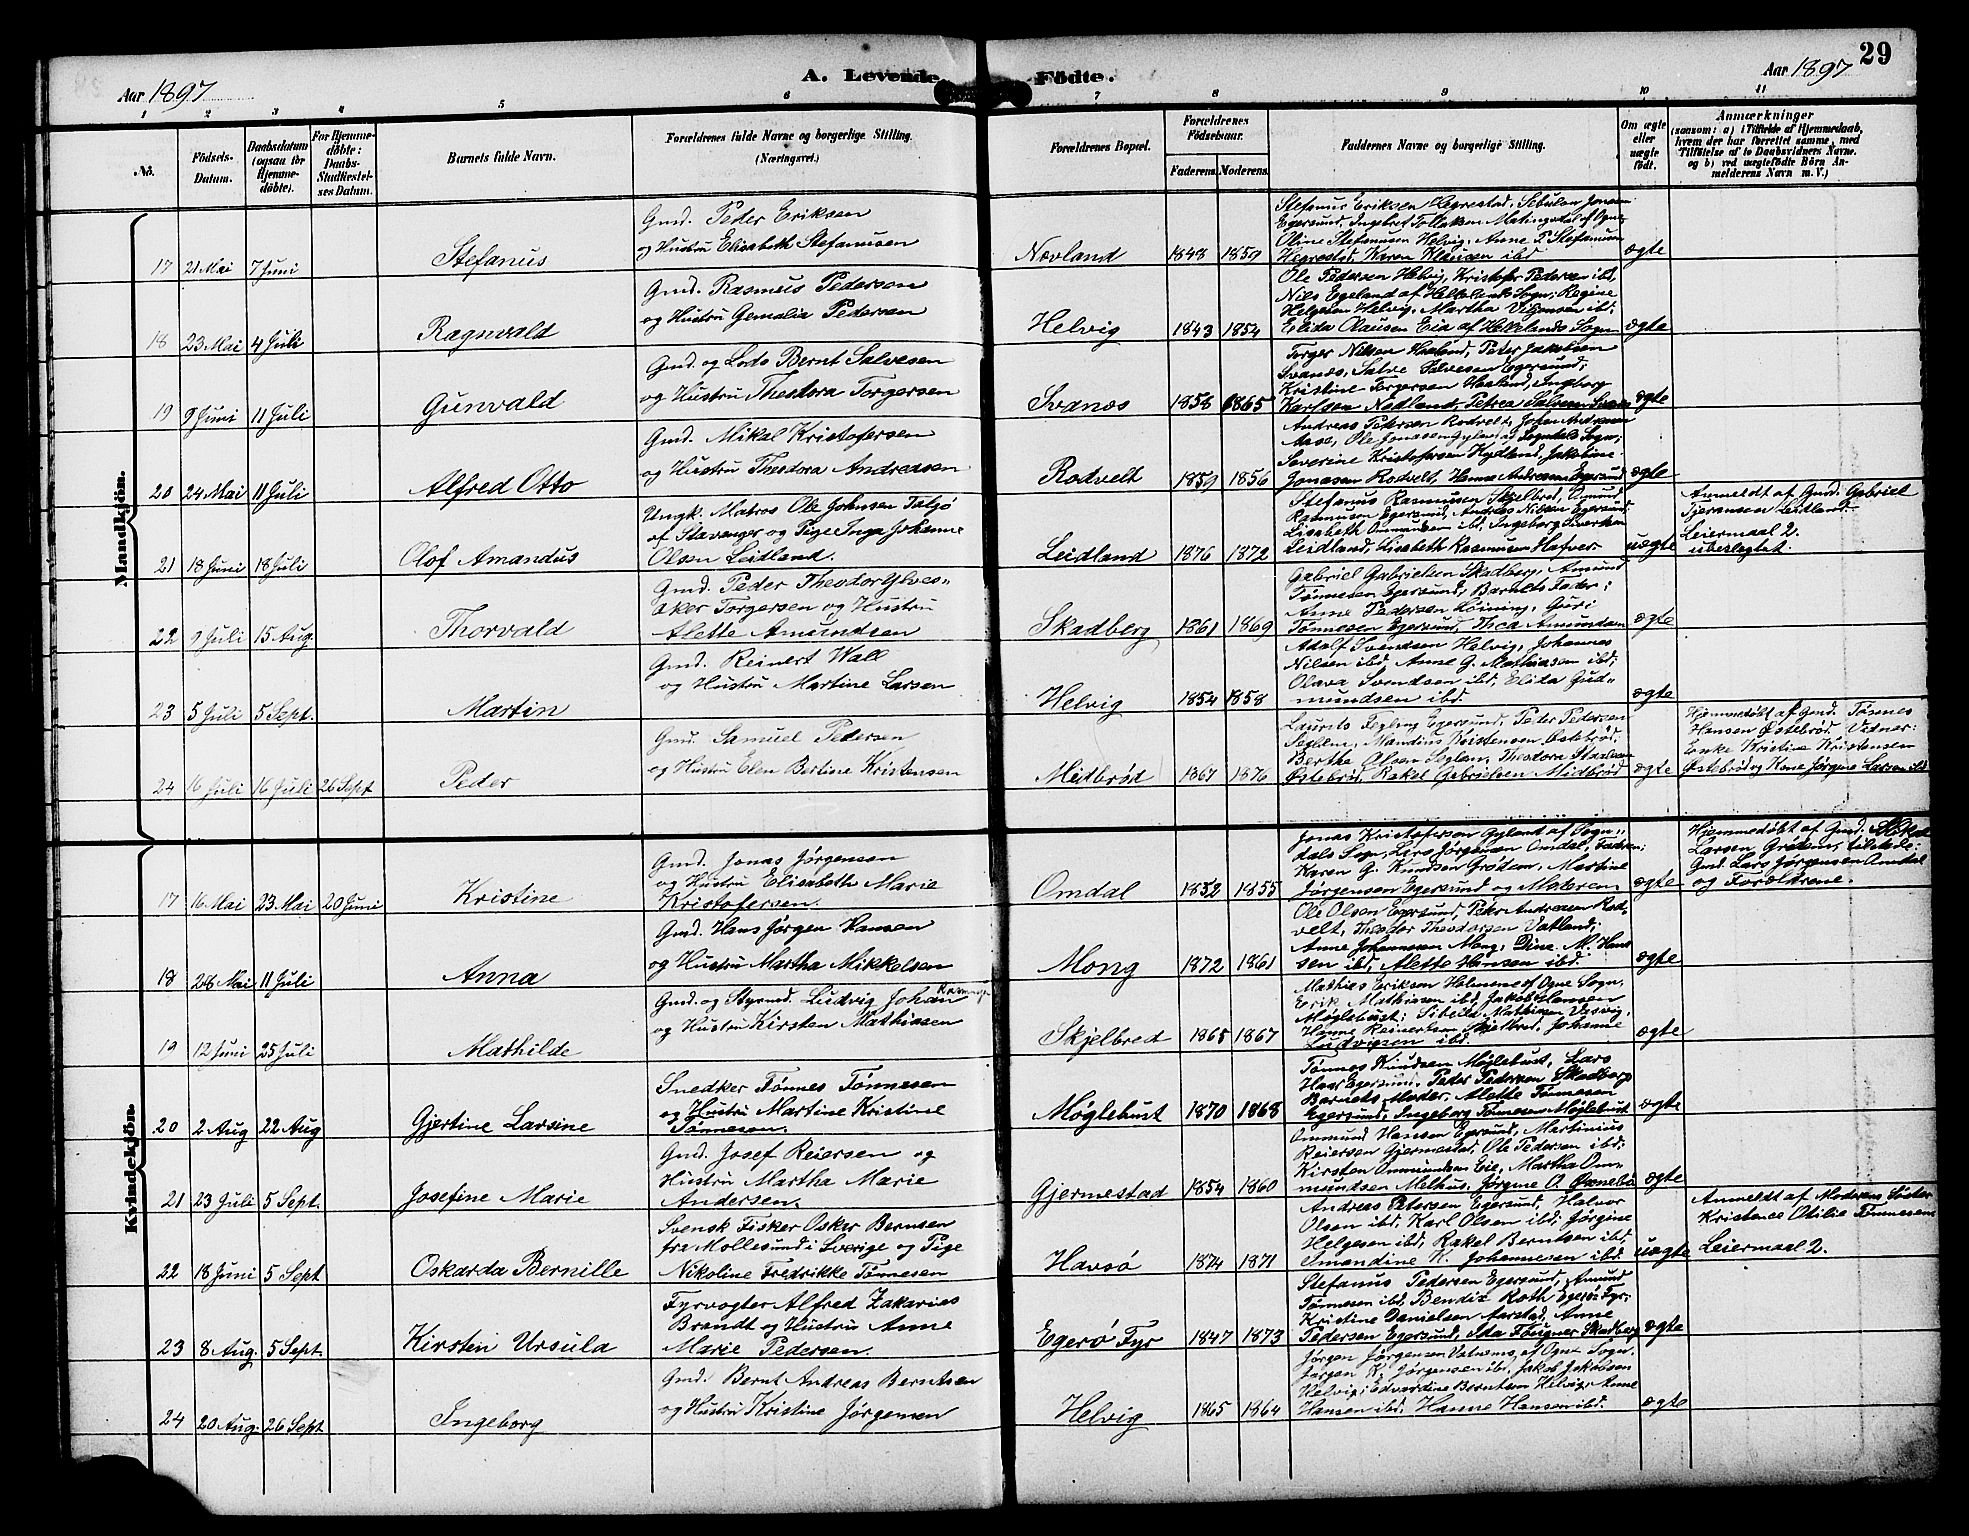 29
A. Levende Födte.
Aar 1897
Aar 1897
1 2 3 4 5 6 7 8 9 10 11
No.
Födsels-Datum.
Daabsdatum (ogsaa for Hjemmedöbte).
For Hjemmedöbte: Daabs-Stadfæstelses Datum.
Barnets fulde Navn.
Forældrenes fulde Navne og borgerlige Stilling. (Næringsvei.)
Forældrenes Bopæl.
Forældrenes Födselsaar.
Faderens. Moderens.
Faddernes Navne og borgerlige Stilling.
Om ægte eller uægte födt.
Anmærkninger
(saasom: a) i Tilfælde af Hjemmedaab, hvem der har forrettet samme, med Tilföielse af to Daabsvidners Navne, og b) ved uægtefödte Börn Anmelderens Navn m. V.)
Mandkjön.
17 21 Mai 7 Juni Stefanus
Gmd. Peder Eriksen
og Hustru Elisabeth Stefanusen
Nævland 1848 1859
Stefanus Eriksen Hegrestad, Sebulon Jonsen
Egersund, Ingebret Tollaksen Matingsdal af Ogne,
Oline Stefanusen Helvig, Anne P. Stefanusen
Hegrestad, Karen Klausen ibd.
ægte
18 23 Mai 4 Juli Ragnvald
Gmd. Rasmus Pederson
og Hustru Gemalia Pedersen
Helvig 1843 1854
Ole Pedersen Helvig, Kristofer Pedersen ibd,
Nils Egeland af Hellelands Sogn; Regine
Helgesen Helvig, Martha ibd;
Elida Olausen Eia af Hellelands Sogn
ægte
19 9 Juni 11 Juli Gunvald
Gmd. og Lods Bernt Salvesen
og Hustru Theodora Torgersen
Svanæs 1858 1865
Torger Nilsen Haaland, Peter Jakobsen
Svanæs, Salve Salvesen Egersund;
Kristine Torgersen Haaland, Ingborg
Karlsen Nodland, Petrea Salvesen Svanæs
ægte
20 24 Mai 11 Juli Alfred Otto
Gmd. Mikal Kristofersen
og Hustru Theodora Andreasen
Rodvelt 1859 1856
Andreas Petersen Rodvelt, Johan Andreasen
Aase, Ole Jonassen Gyland af Sogndals Sogn;
Severine Kristofersen Hydland, Jakobine
Jonasen Rodvelt, Hanna Andresen Egersund
ægte
21 18 Juni 18 Juli Olof Amandus
Ungk. Matros Ole Johnsen Taljø
af Stavanger og Pige Inga Johanne
Olsen Leidland.
Leidland 1876 1872
Stefanus Rasmusen Skjelbred, Omund
Rasmusen Egersund, Andreas Nilsen Egersund,
Lisabeth Ommundsen ibd, Ingeborg Sivertsen
Leidland, Lisabeth Rasmusen Hafver
uægte
Anmeldt af Gmd. Gabriel
Gjeransen Leidland.
Leiermaal 2.
ubeslægtet.
22 9 Juli 15 Aug. Thorvald
Gmd. Peder Theodor Ylves-
aker Torgersen og Hustru
Alette Amundsen
Skadberg 1861 1869
Gabriel Gabrielsen Skadberg, Amund
Tønnesen Egersund, Barnets Fader;
Anne Pedersen Loining, Guri
Tønnesen Egersund, Thea Amundsen
ægte
23 5 Juli 5 Sept. Martin
Gmd. Reinert Wall
og Hustru Martine Larsen
Helvig 1854 1858
Adolf Svendsen Helvig, Johannes
Nilsen ibd, Anne G. Mathiasen ibd;
Olava Svendsen ibd, Elida Gud-
mundsen ibd.
ægte
24 16 Juli 16 Juli 26 Sept Peder
Gmd. Samuel Pedersen
og Hustru Elen Bertine Kristensen
Midbrød 1867 1876
Laurits Segling Egersund, Peder Pedersen
Seglem, Mandius Kristensen Østebrød;
Berthe Olsen Seglem, Theodora
Østebrød, Rakel Gabrielsen Midbrød
ægte
Hjemmedøbt af Gmd. Tønnes
Hansen Østebrød. Vidner:
Enke Kristine Kristensen
Østebrød og Kone Jørgine Larsen ibd
Kvindekjön.
17 16 Mai 23 Mai 20 Juni Kristine
Gmd. Jonas Jørgensen
og Hustru Elisabeth Marie
Kristofersen.
Omdal 1852 1855
Jonas Kristofersen Gyland af Sogn-
dals Sogn, Lars Jørgensen Omdal, Faderen;
Karen G. Knudsen Grøtem, Martine
Jørgensen Egersund og Moderen
ægte
Hjemmedøbt af Gmd.
Larsen Grøtem, tilstede:
Gmd. Lars Jørgensen Omdal
og Forældrene.
18 28 Mai 11 Juli Anna
Gmd. Hans Jørgen Hansen
og Hustru Martha Mikkelsen
Mong 1872 1861
Ole Olsen Egersund, Peter Andreasen Rod-
velt, Theodor Theodorsen Vatland;
Anne Johannesen Mong, Dine M. Han-
sen ibd, Alette Hansen ibd.
ægte
19 12 Juni 25 Juli Mathilde
Gmd. og Styrmd. Ludvig Johan
og Hustru Kirsten Mathiasen
Skjelbred 1865 1867
Mathias Eriksen Helmene af Ogne Sogn,
Erik Mathiasen ibd, Jakob Hansen
Møglebust; Sibeila Mathiasen
Hanne Reinertsen Skjelbred, Johanne
Ludvigsen ibd.
ægte
20 2 Aug 22 Aug Gjertine Larsine
Snedker Tønnes Tønnesen
og Hustru Martine Kristine
Tønnesen.
Møglebust 1870 1868
Tønnes Knudsen Møglebust, Lars
Egersund, Peder Pedersen Skadberg
Barnets Moder, Alette Tønnesen
Egersund, Ingeborg Tønnesen Møglebust
ægte
21 23 Juli 5 Sept. Josefine Marie
Gmd. Josef Reiersen og
Hustru Martha Marie
Andersen.
Gjermestad 1854 1860
Ommund Hansen Egersund, Martinius
Reiersen Gjermestad, Ole Pedersen ibd;
Kirsten Ommundsen Eie, Martha Om-
mundsen Melhus, Jørgine O.
ægte
22 18 Juni 5 Sept Oskarda Bernille
Svensk Fisker Oskar Bernsen
fra Mollesund i Sverige og Pige
Nikoline Fredrikke Tønnesen
Havsø 1874 1871
Andreas Petersen Egersund, Halvor
Olsen ibd, Karl Olsen ibd. Jørgine
Helgesen ibd, Rakel Berntsen ibd,
Amandine K. Johannesen ibd.
uægte
Anmeldt af Moderens Søster
Kristence Otilie Tønnesen.
Leiermaal 2.
23 8 Aug. 5 Sept. Kirstin Ursula
Fyrvogter Alfred Zakarias
Brandt og Hustru Anne
Marie Pedersen.
Egerø Fyr 1847 1873
Stefanus Pedersen Egersund, Amund
Tønnesen ibd, Bendix Roth Egerø Fyr,
Kristine Danielsen Aarstad, Anne
Pedersen Egersund, Ida Fougner Skadberg
ægte
24 20 Aug. 26 Sept Ingeborg
Gmd. Bernt Andreas Berntsen
og Hustru Kristine Jørgensen
Helvig 1865 1864
Jørgen Jørgensen af Ogne Sogn,
Jørgen K. Jørgensen ibd, Jakob Jakobsen
Helvig; Edvardine Berntsen Helvig, Anne
Hansen ibd, Hanne Hansen ibd.
ægte